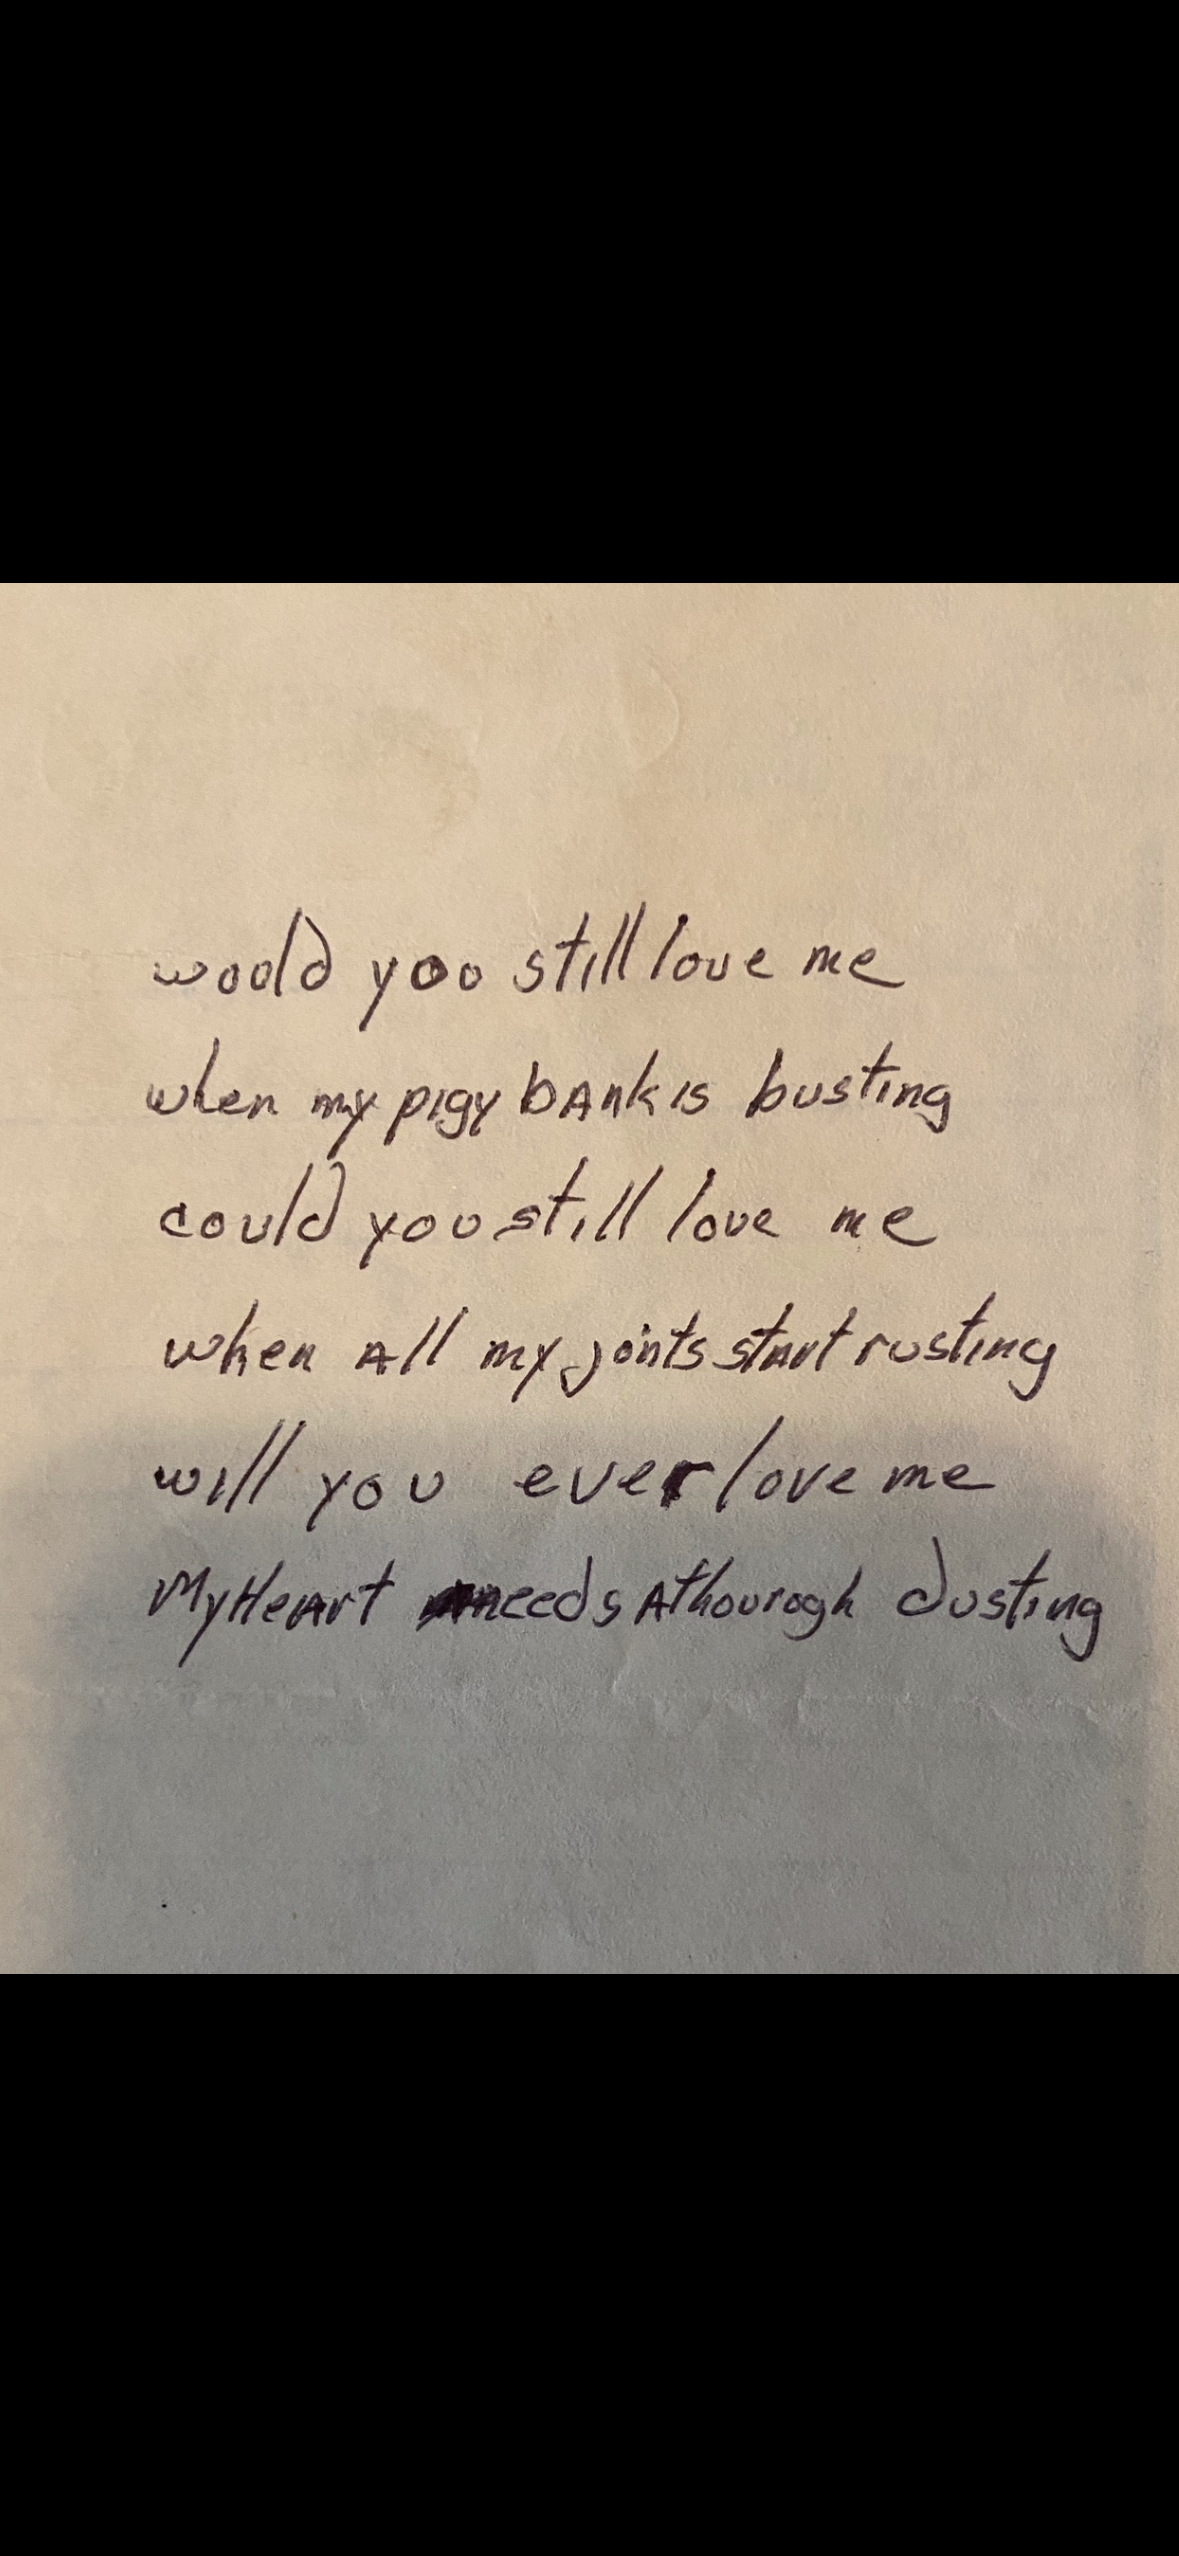 would you still love me
when my pigy bAnk is busting
could you still love me
when All my joints stArt rusting
will you ever love me
My HeArt needs A thourogh dusting